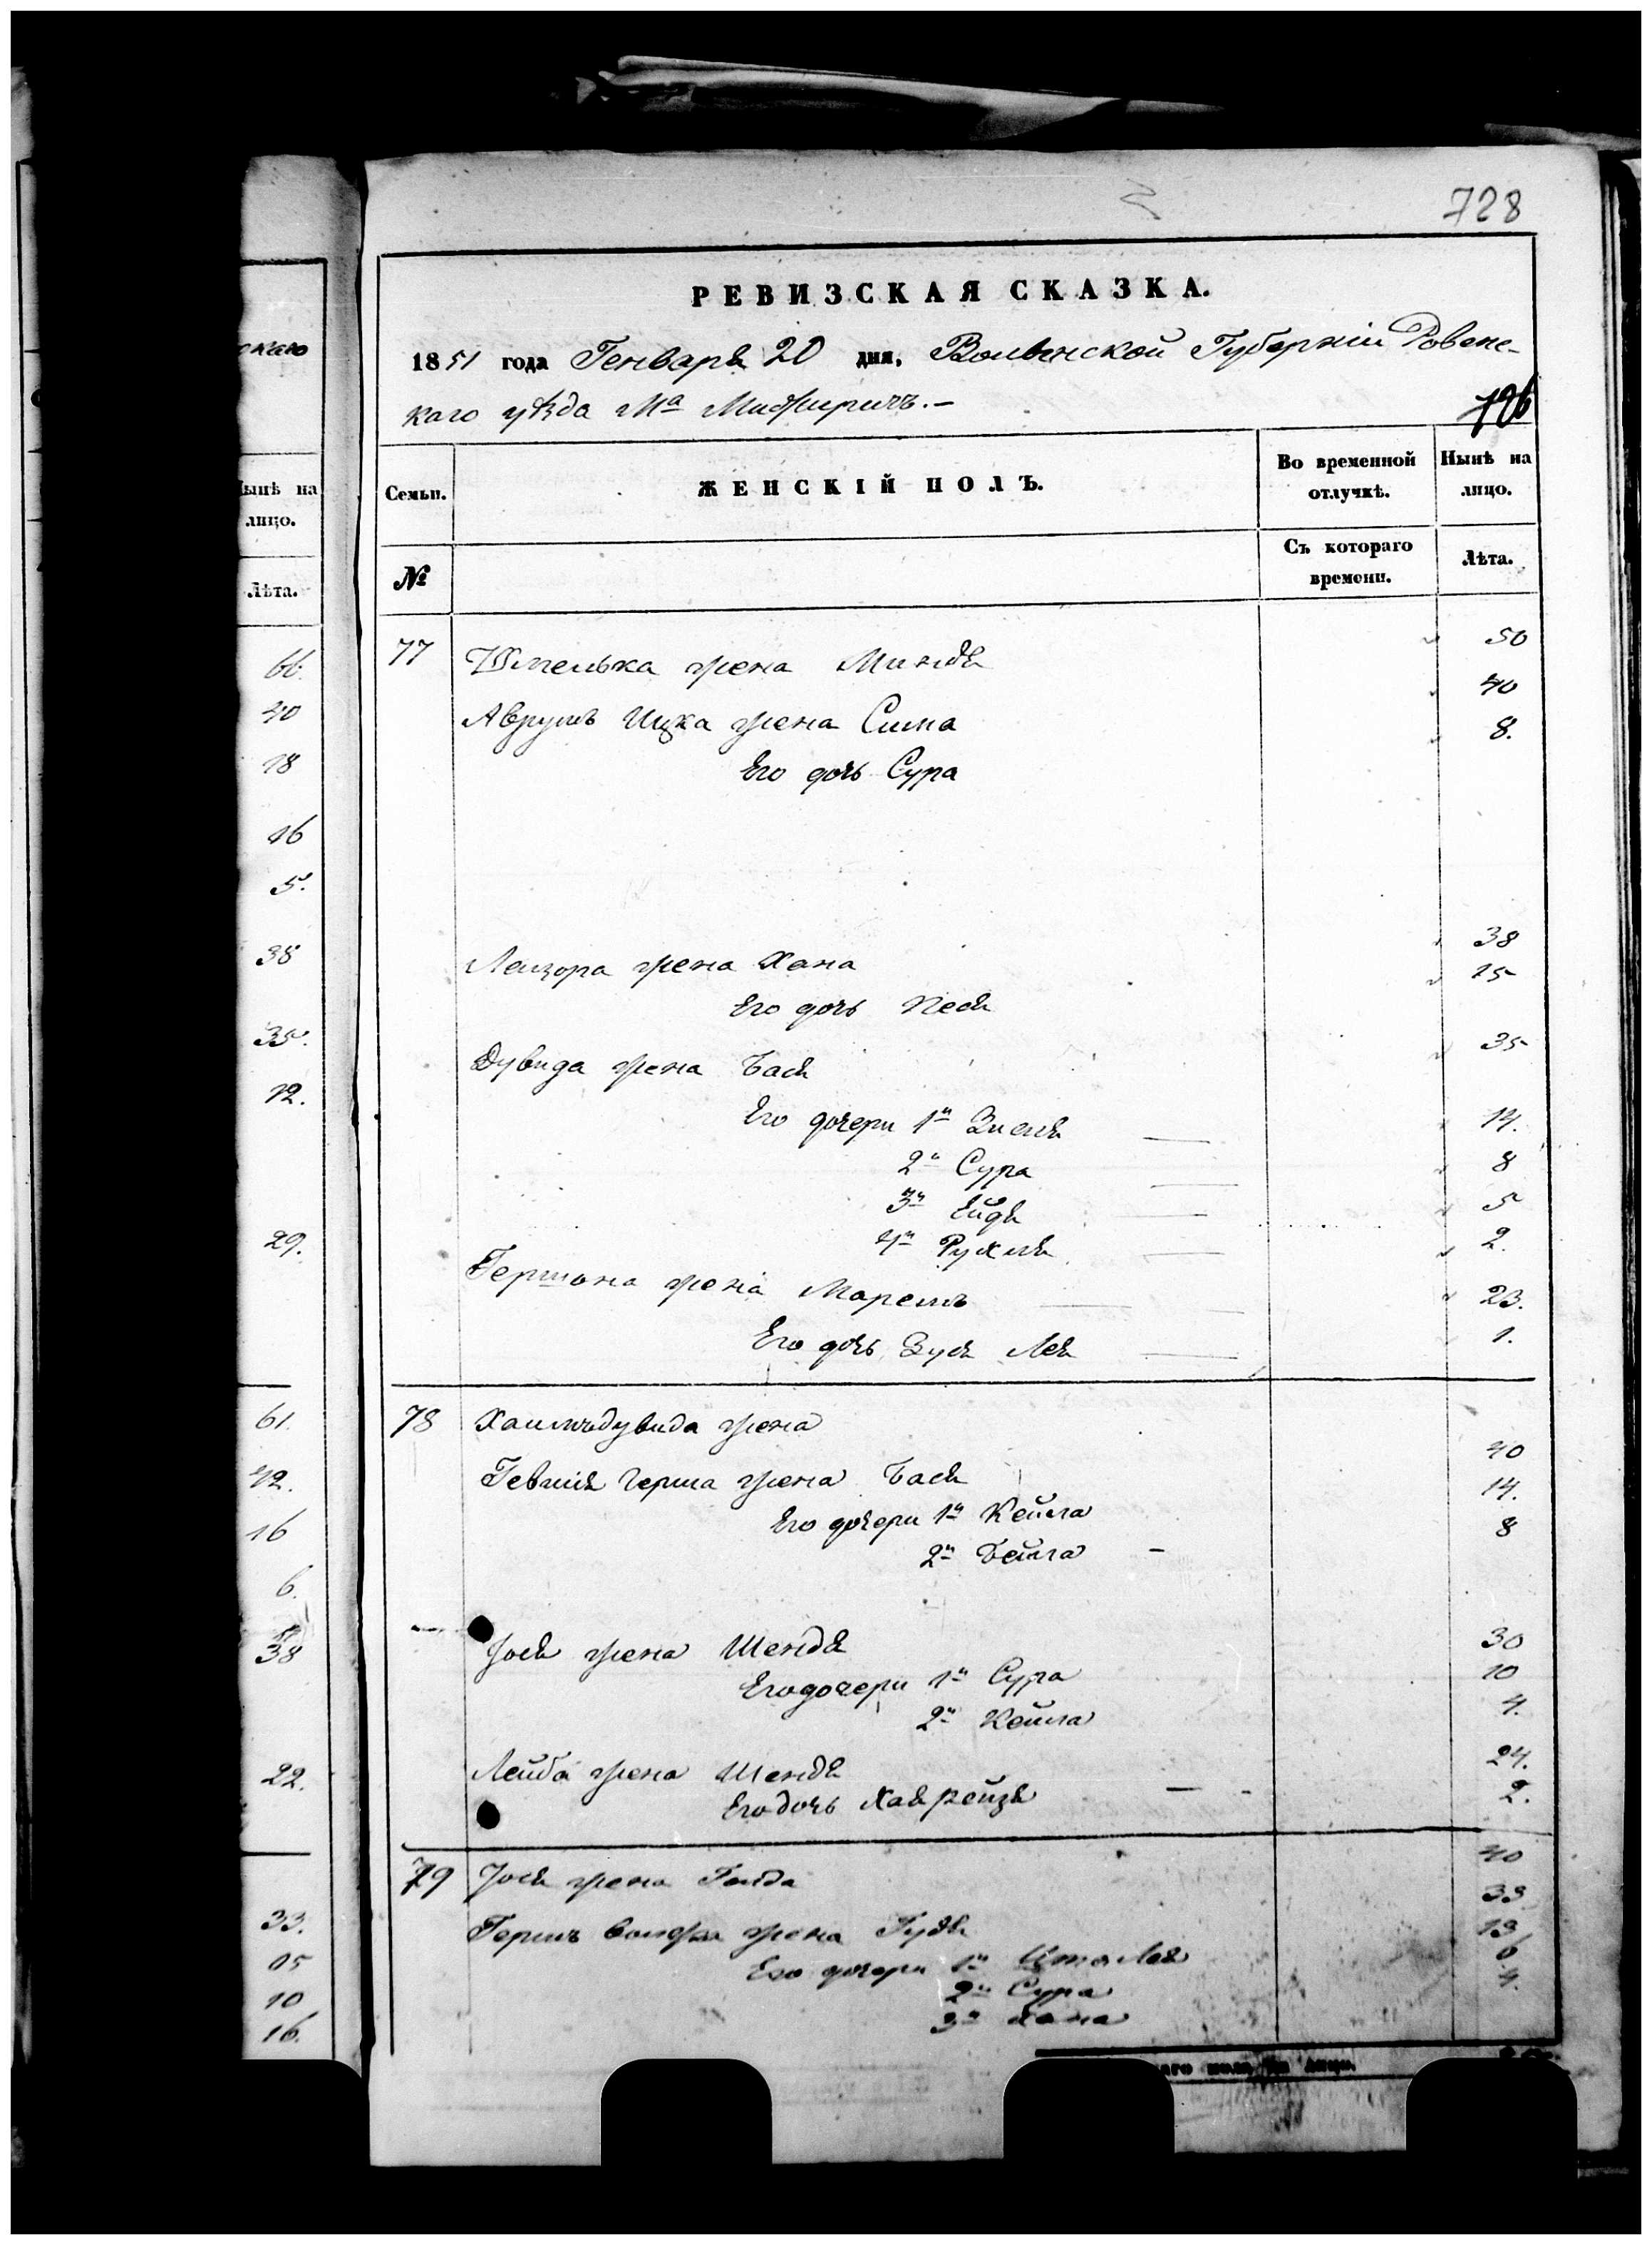 728
РЕВИЗСКАЯ СКАЗКА.
1851 года Генваря 20 дня, Волынской Губерніи Ровенс-
каго уѣзда Мᵃ Межиричъ.-
726
скаго
Семьи.
ЖЕНСКІЙ ПОЛЪ.
Во временной отлучкѣ.
Нынѣ на лицо.
№
Съ котораго времени.
Лѣта.
Нынѣ на
лицо.
Лѣта.
66.
40
18
16
5.
38
35.
12.
29.
61.
42.
16
6.
38
22.
33.
15
10
16.
77 Шмелька жена Миндя 50
Аврумъ Ицка жена Сима 40
Его дочь Сура 8.
Лейзора жена Хана 38
Его дочь Песя 15
Дувида жена Бася 35
Его дочери 1я Зисля 14.
2я Сура 8
3я Ейдя 5
4я Рухля 2.
Гершона жена Маремъ 23.
Его дочь Зуся Лея 1.
78 Хаимъдувида жена
Гевшія Герша жена Бася 40
Его дочери 1я Кейла 14.
2я Бейла 8
Іося жена Шендя 30
Его дочери 1я Сура 10
2я Кейла 4.
Лейба жена Шендя 24.
Его дочь Хая Рейзя 2.
79 Іося жена Голда 40
Гершъ Волфа жена Гудя 33
Его дочери 1я Лея 13
2я Сура 6
3я Хана 4.